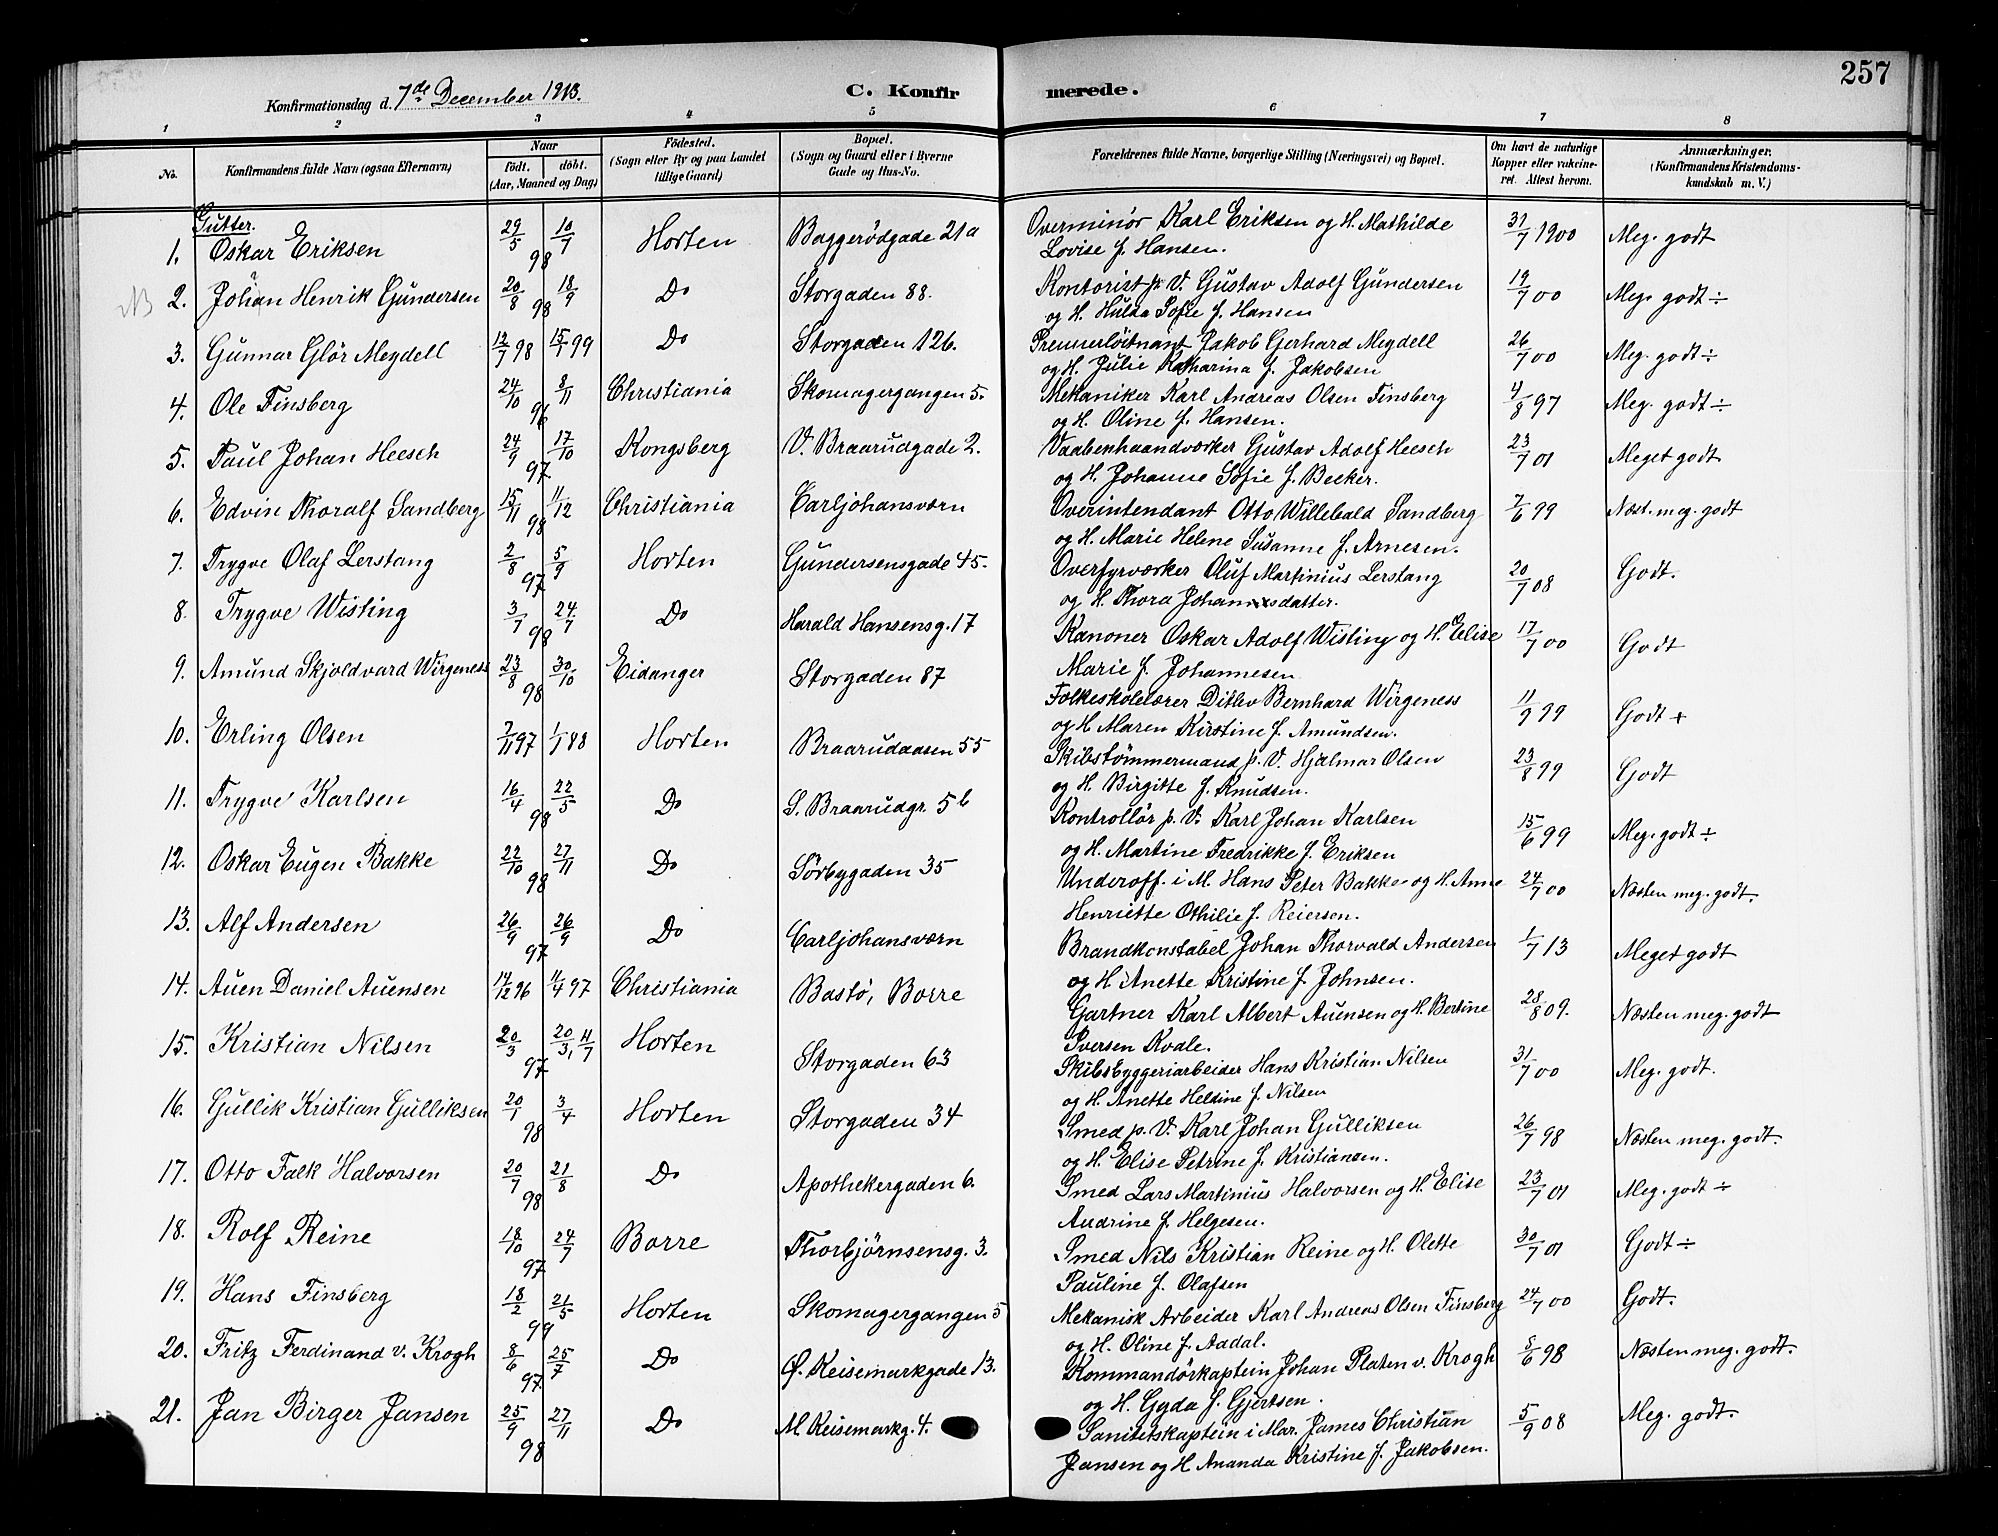 257
Konfirmationsdag d. 7de December 1913. C. Konfirmerede.
1 2 3 4 5 6 7 8
No. Konfirmandens fulde Navn (ogsaa Efternavn) Naar født. døbt. (Aar, Maaned og Dag) Fødested. (Sogn eller By og paa Landet tillige Gaard) Bopæl. (Sogn og Gaard eller i Byerne Gade og Hus-No. Forældrenes fulde Navne, borgerlige Stilling (Næringsvei) og Bopæl. Om havt de naturlige Kopper eller vakcineret. Attest herom. Anmærkninger. (Konfirmandens Kristendomskundskab m. V.)
Gutter.
1. Oskar Eriksen 29/5 98 10/7 Horten Baggerödgade 21a Overminör Karl Eriksen og H. Mathilde 31/7 1900 Meg. godt
Lovise f. Hansen.
NB 2. Johan Henrik Gundersen 20/8 98 18/9 Do Storgaden 88. Kontorist p. V. Gustav Adolf Gundersen 19/7 00 Meg. godt ÷
og H. Hulda Sofie f. Hansen
3. Gunnar Glör Meydell 13/7 98 15/1 99 Do Storgaden 126. Premierløitnant Jakob Gerhard Meydell 26/7 00 Meg. godt ÷
og H. Julie Katharina f. Jakobsen
4. Ole Finsberg 24/10 96 8/11 Christiania Skomagergangen 5. Mekaniker Karl Andreas Olsen Finsberg 4/8 97 Meg. godt ÷
og H. Oline f. Hansen.
5. Paul Johan Heesch 24/9 97 17/10 Kongsberg V. Braarudgade 2. Vaabenhaandværker Gustav Adolf Heesch 23/7 01 Meget godt
og H. Johanne Sofie f. Becker.
6. Edvin Thoralf Sandberg 15/11 98 11/12 Christiania Carljohansværn Overintendant Otto Willebald Sandberg 7/6 99 Næst. meg. godt
og H. Marie Helene Susanne f. Arnesen.
7. Trygve Olaf Lerstang 2/8 97 5/9 Horten Gundersensgade 45. Overfyrværker Oluf Martinius Lerstang 20/7 08 Godt.
og H. Thora Johannesdatter.
8. Trygve Wisting 3/7 98 24/7 Do Harald Hansensg. 17 Kanoner Oskar Adolf Wisting og H. Elise 17/7 00 Godt
Marie f. Johannesen
9. Amund Skjoldvard Wirgeness 23/8 98 30/10 Eidanger Storgaden 87 Folkeskolelærer Ditlev Bernhard Wirgeness 11/9 99 Godt +
og H. Maren Kirstine f. Amundsen.
10. Erling Olsen 7/11 97 1/1 88 Horten Braarudaasen 55 Skibstømmermand p. V. Hjalmar Olsen 23/8 99 Godt
og H. Birgitte f. Knudsen.
11. Trygve Karlsen 16/4 98 22/5 Do S. Braarudgr. 5b Kontrollör p. V. Karl Johan Karlsen 15/6 99 Meg. godt ÷
og H. Martine Fredrikke f. Eriksen
12. Oskar Eugen Bakke 22/10 98 27/11 Do Sörbygaden 35 Underoff. i M. Hans Peter Bakke og H. Anne 24/7 00 Næsten meg. godt.
Henriette Othilie f. Reiersen.
13. Alf Andersen 26/9 97 26/9 Do Carljohansværn Brandkonstabel Johan Thorvald Andersen 1/7 13 Meget godt
og H. Anette Kristine f. Johnsen.
14. Auen Daniel Auensen 14/12 96 11/4 97 Christiania Bastö, Borre Gartner Karl Albert Auensen og H. Bertine 28/8 09. Næsten meg. godt
Iversen Kvale.
15. Kristian Nilsen 20/3 97 20/3, 11/7 Horten Storgaden 63 Skibsbyggeriarbeider Hans Kristian Nilsen 31/7 00 Meg. godt.
og H. Anette Helsine f. Nilsen
16. Gullik Kristian Gulliksen 20/1 98 3/4 Horten Storgaden 34 Smed p. V. Karl Johan Gulliksen 26/7 98 Næsten meg. godt.
og H. Elise Petrine f. Kristiansen.
17. Otto Falk Halvorsen 20/7 98 21/8 Do Apothekergaden 6. Smed Lars Martinius Halvorsen og H. Elise 23/7 01 Meg. godt ÷
Audrine f. Helgesen.
18. Rolf Reine 18/10 97 24/7 Borre Thorbjørnsensg. 3. Smed Nils Kristian Reine og H. Olette 30/7 01 Godt ÷
Pauline f. Olafsen
19. Hans Finsberg 18/2 99 21/5 Horten Skomagergangen 5 Mekanisk Arbeider Karl Andreas Olsen Finsberg 24/7 00 Godt.
og H. Oline f. Aadal.
20. Fritz Ferdinand v. Krogh 8/6 97 25/7 Do Ø. Keisemarkgade 13. Kommandörkaptein Johan Platen v. Krogh 8/6 98 Næsten meg. godt.
og H. Gyda f. Gjertsen.
21. Jan Birger Jansen 25/9 98 27/11 Do M. Keisemarkg. 4. Sanitetskaptein i Mar. James Christian 5/9 08 Meg. godt.
Jansen og H Ananda Kristine f. Jakobsen.